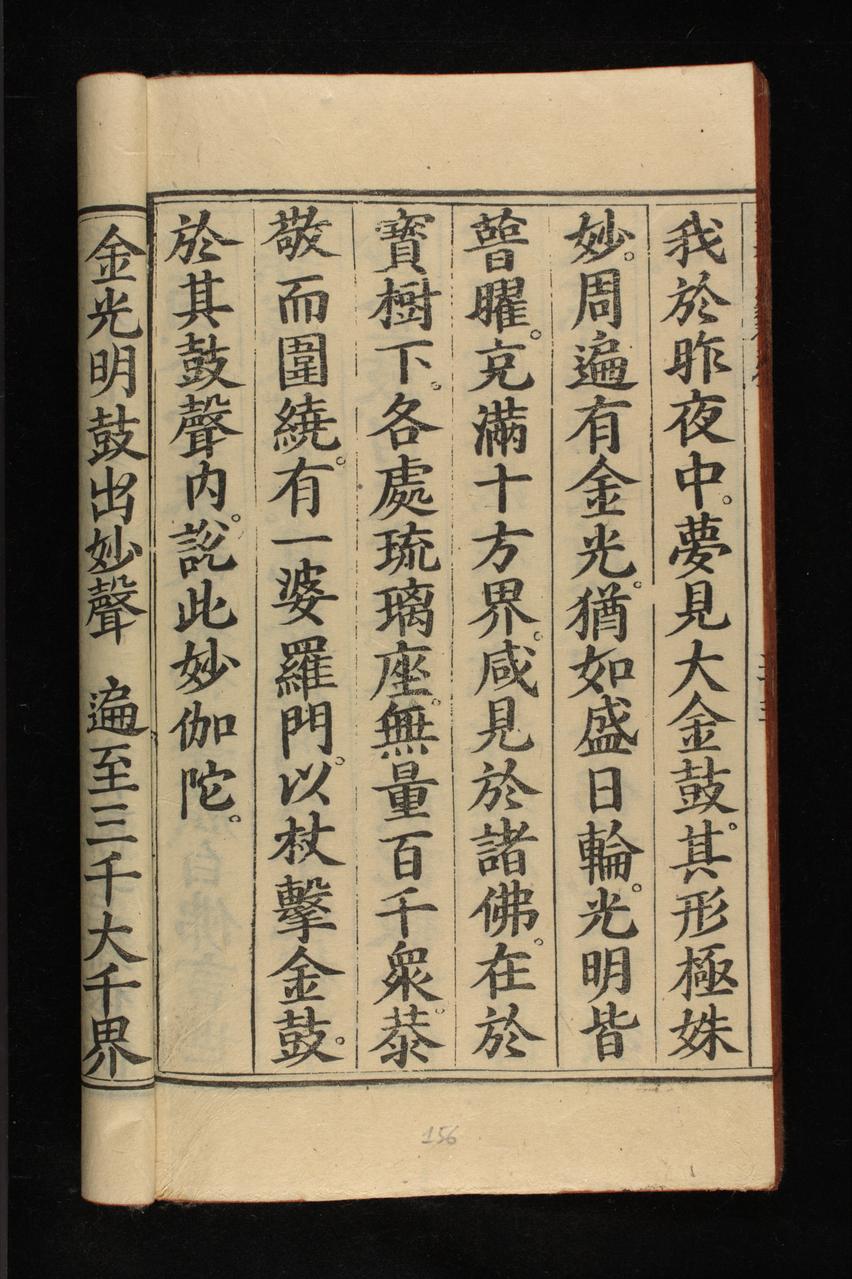 我於昨夜中。夢見大金鼓。其形極姝
妙。周遍有金光。猶如盛日輪。光明皆
普曜。充滿十方界。咸見於諸佛。在於
寶樹下。各處琉璃座。無量百千衆。恭
敬而圍繞。有一婆羅門。以杖擊金鼓。
於其鼓聲内。說此妙伽陀。
金光明鼓出妙聲　遍至三千大千界
156